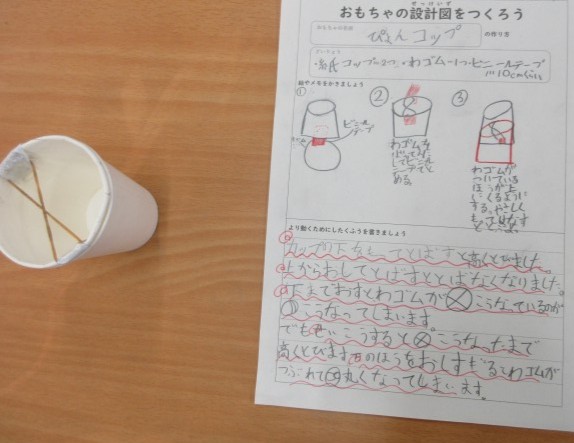 せっけいず
おもちゃの設計図をつくろう
おもちゃの名前
ぴょんコップ の作り方
ざいりょう
・紙コップ二つ・わゴム一つ・ビニールテープ
10cmぐらい
絵やメモをかきましょう
① ② ③
ビニール
テープ
わゴムを
して
ビニール
テープでと
める。
わゴムが
ついている
ほうが上
にくるように
する。
より動くためにしたくふうを書きましょう
カップの下をもってとばすと高くとびました。
上からおしてとばすととばなくなりました。
下までおすとわゴムが こうなっているのが
こうなってしまいます
でも こうすると こうなったまで
高くとびます のほうをおしすぎるとわゴムが
つぶれて 丸くなってしまいます。